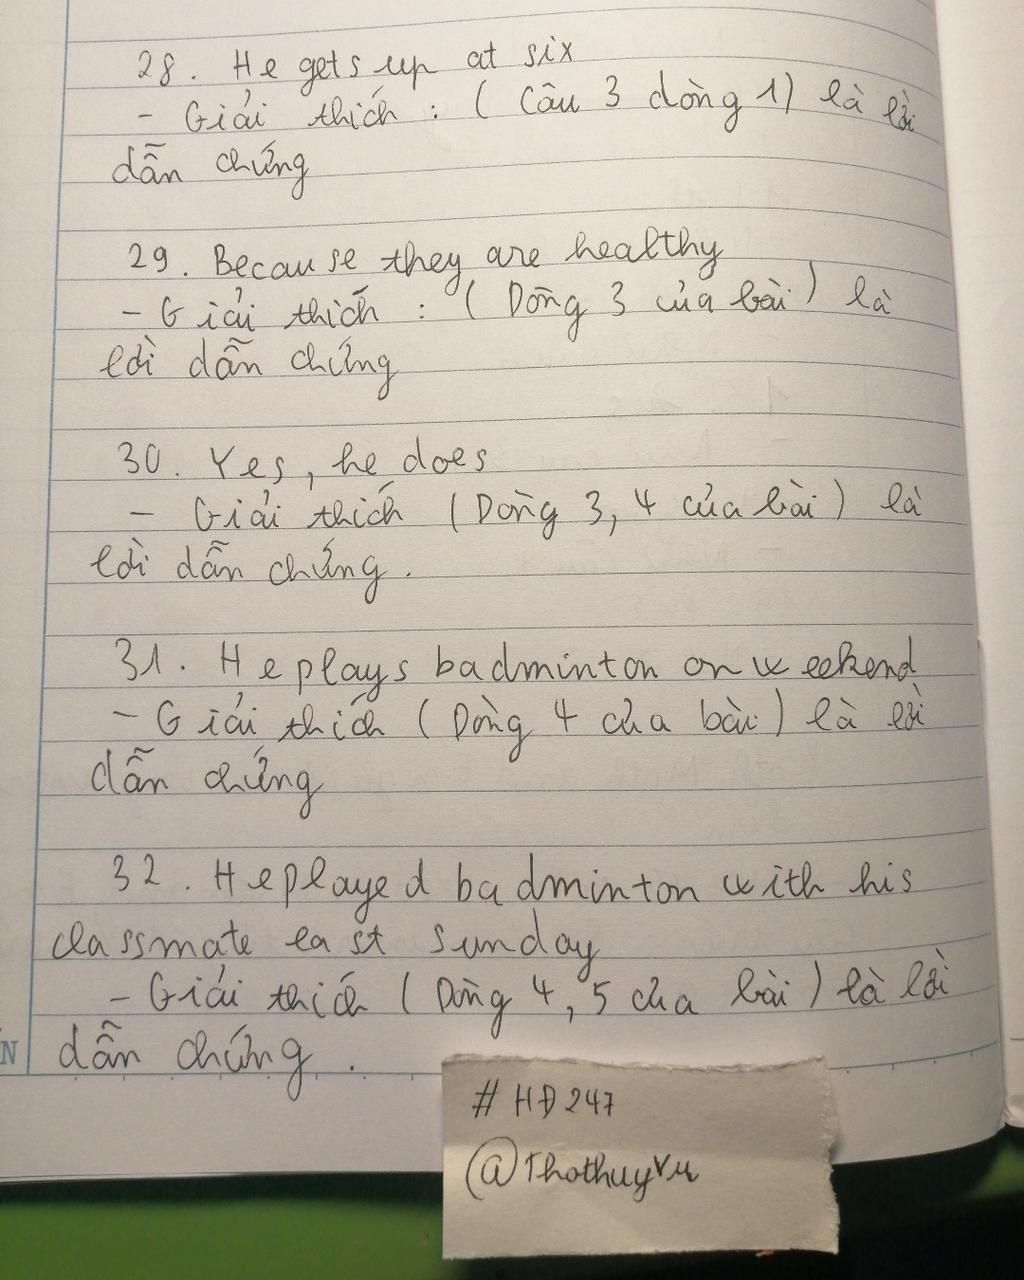 28. He gets up at six
- Giải thích : ( Câu 3 dòng 1) là lời
dẫn chứng
29. Because they are healthy
- Giải thích : ( Dòng 3 của bài ) là
lời dẫn chứng
30. Yes, he does
- Giải thích ( Dòng 3, 4 của bài ) là
lời dẫn chứng.
31. He plays badminton on weekend
- Giải thích ( Dòng 4 của bài ) là lời
dẫn chứng
32. He played badminton with his
classmate last sunday
- Giải thích ( Dòng 4, 5 của bài ) là lời
dẫn chứng.
N
# HĐ247
@Thothuyvu